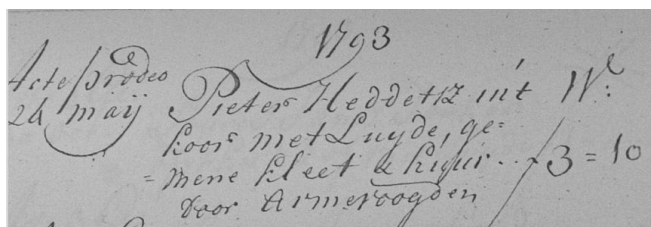 1793
Acte prodeo
24 maÿ Pieter Heddetz in't W:
koor met Luyde, ge=
= mene kleet & huur .. f 3 = 10
door Armevoogden